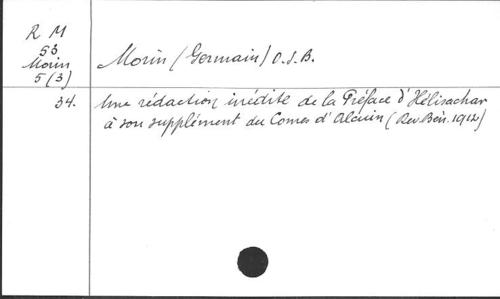 R M
53
Morin
5(3)
Morin (Germain) O.S.B.
34. Une rédaction inédite de la Préface d'Hélisachar
à son supplément du Comes d'Alcuin (Rev. Bén. 1912)